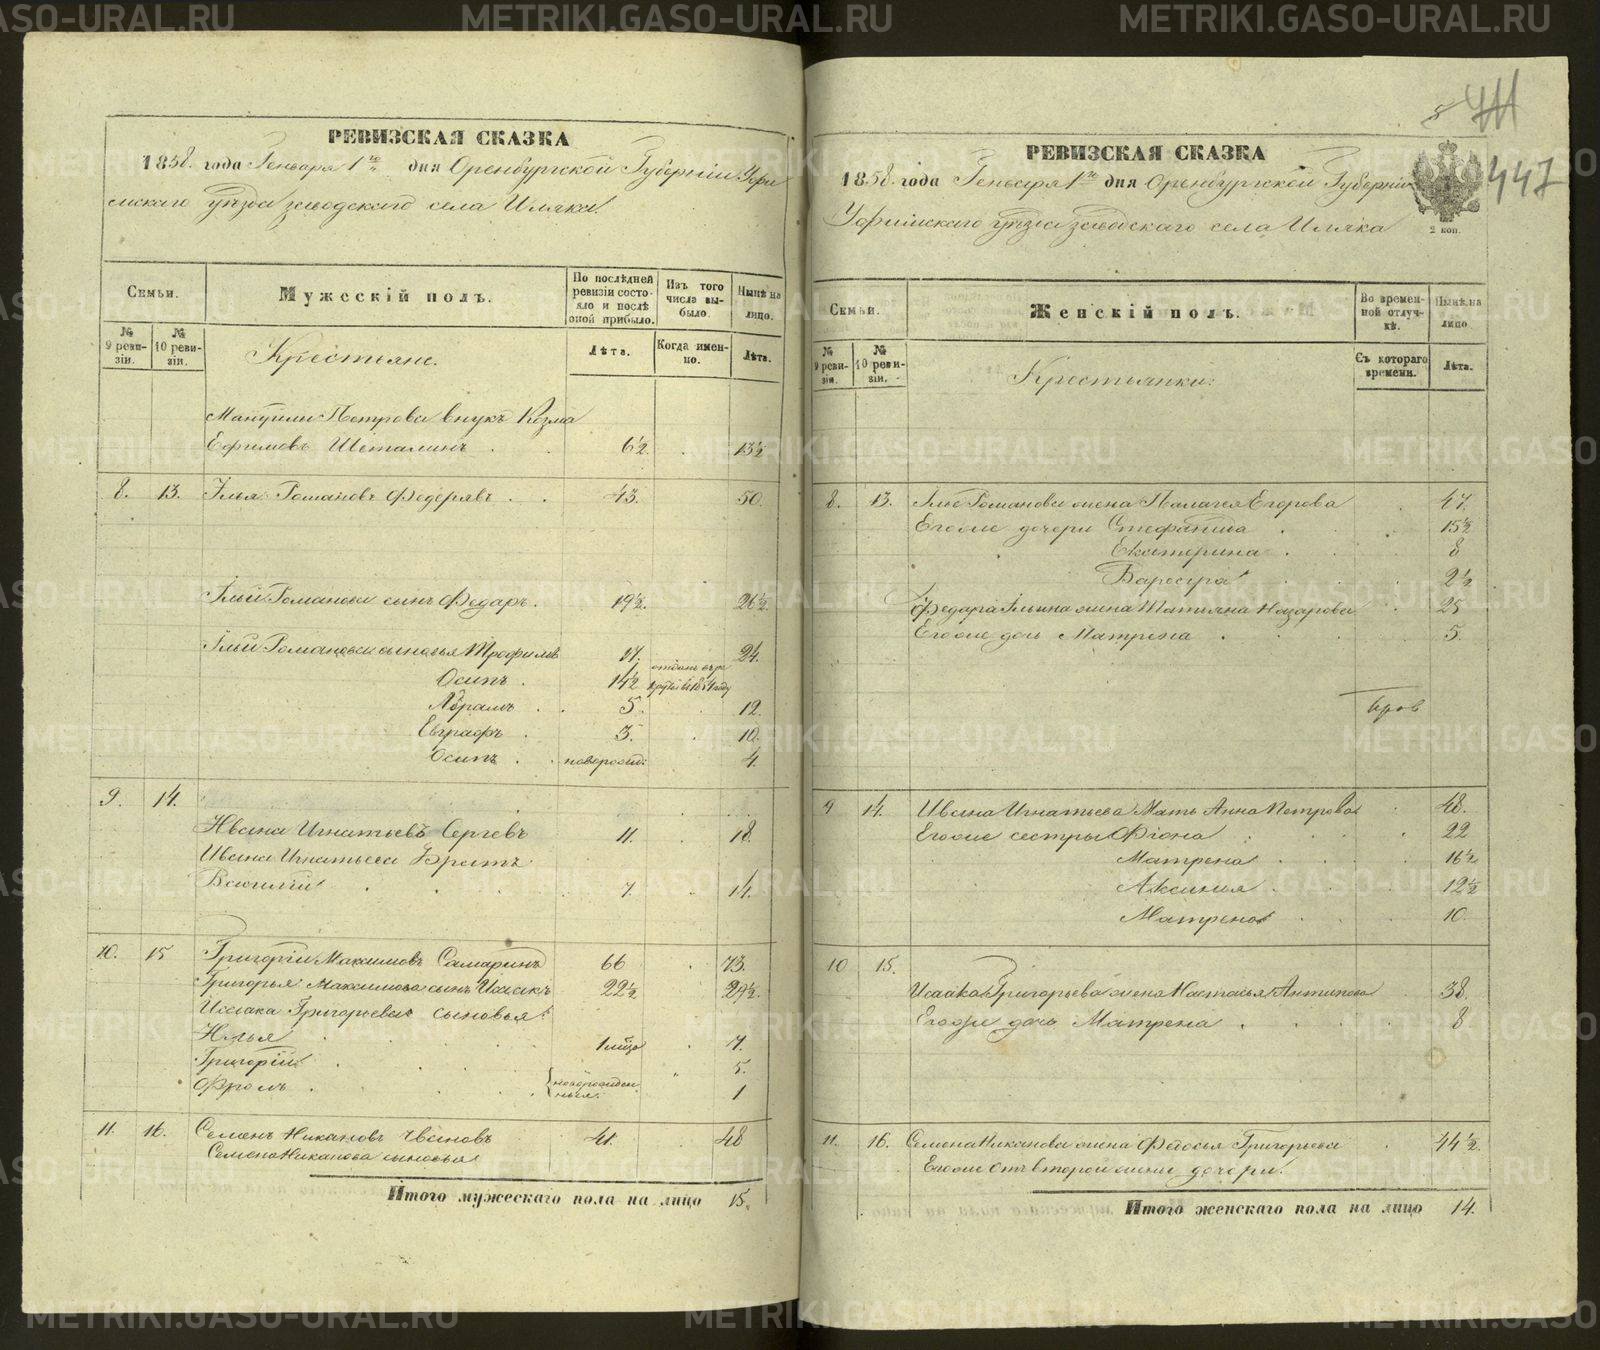 METRIKI.GASO-URAL.RU
РЕВИЗСКАЯ СКАЗКА
1858. года Генваря 1го дня Оренбургской Губерніи Уфи
мскаго уѣзда заводскаго села Иляка.
Семьи.
Мужескій полъ.
По послѣдней ревизіи состояло и послѣ оной прибыло.
Изъ того числа выбыло.
Нынѣ на лицо.
№ 9 ревизіи.
№ 10 ревизіи.
Крестьяне.
Лѣта.
Когда именно.
Лѣта.
Петрова внукъ Козма
Ефимовъ 6½ 13½
8. 13. Илья Романовъ 43. 50.
Ильи Романова сынъ Федаръ. 19½. 26½
Ильи Романова сыновья Трофимъ 17. 24.
Осипъ. 14½ 1854 году
Абрамъ 5. 12.
Евграфъ 3. 10.
Осипъ новорожд: 4.
9. 14.
Ивана Игнатьевъ Сергевъ 11. 18.
Ивана Игнатьева Братъ
Василій 7. 14.
10. 15 Григорій Максимовъ Самаринъ 66 73.
Григорья Максимова сынъ Исаакъ 22½ 29½.
Исаака Григорьева сыновья:
Илья 7.
Григорій 5.
Фролъ новорожденныя. 1
11. 16. Семенъ Никановъ Ивановъ 41. 48
Семена Никанова сыновья
Итого мужескаго пола на лицо 15.
8
447
РЕВИЗСКАЯ СКАЗКА
1858. года Генваря 1го дня Оренбургской Губерніи
Уфимскаго уѣзда заводскаго села Иляка
2 коп.
Семьи.
Женскій полъ.
Во временной отлучкѣ.
Нынѣ на лицо
№ 9 ревизіи.
№ 10 ревизіи.
Крестьянки:
Съ котораго времени.
Лѣта.
8. 13. Ильи Романова жена Палагея Егорова 47.
Егоже дочери Стефанида 15½
Екатерина 8
Варвара 2½
Федара Ильина жена Татьяна Назарова 25
Егоже дочь Матрена 5.
9 14. Ивана Игнатьева Мать Анна Петрова 48.
Егоже сестры Фіона 22
Матрена 16½
Аксинья 12½
Матрена 10.
10 15.
Исаака Григорьева жена Настасья Антипова 38
Егоже дочь Матрена 8
11. 16. Семена Никанова жена Федосья Григорьева 44½.
Егоже отъ второй жены дочери.
Итого женскаго пола на лицо 14.